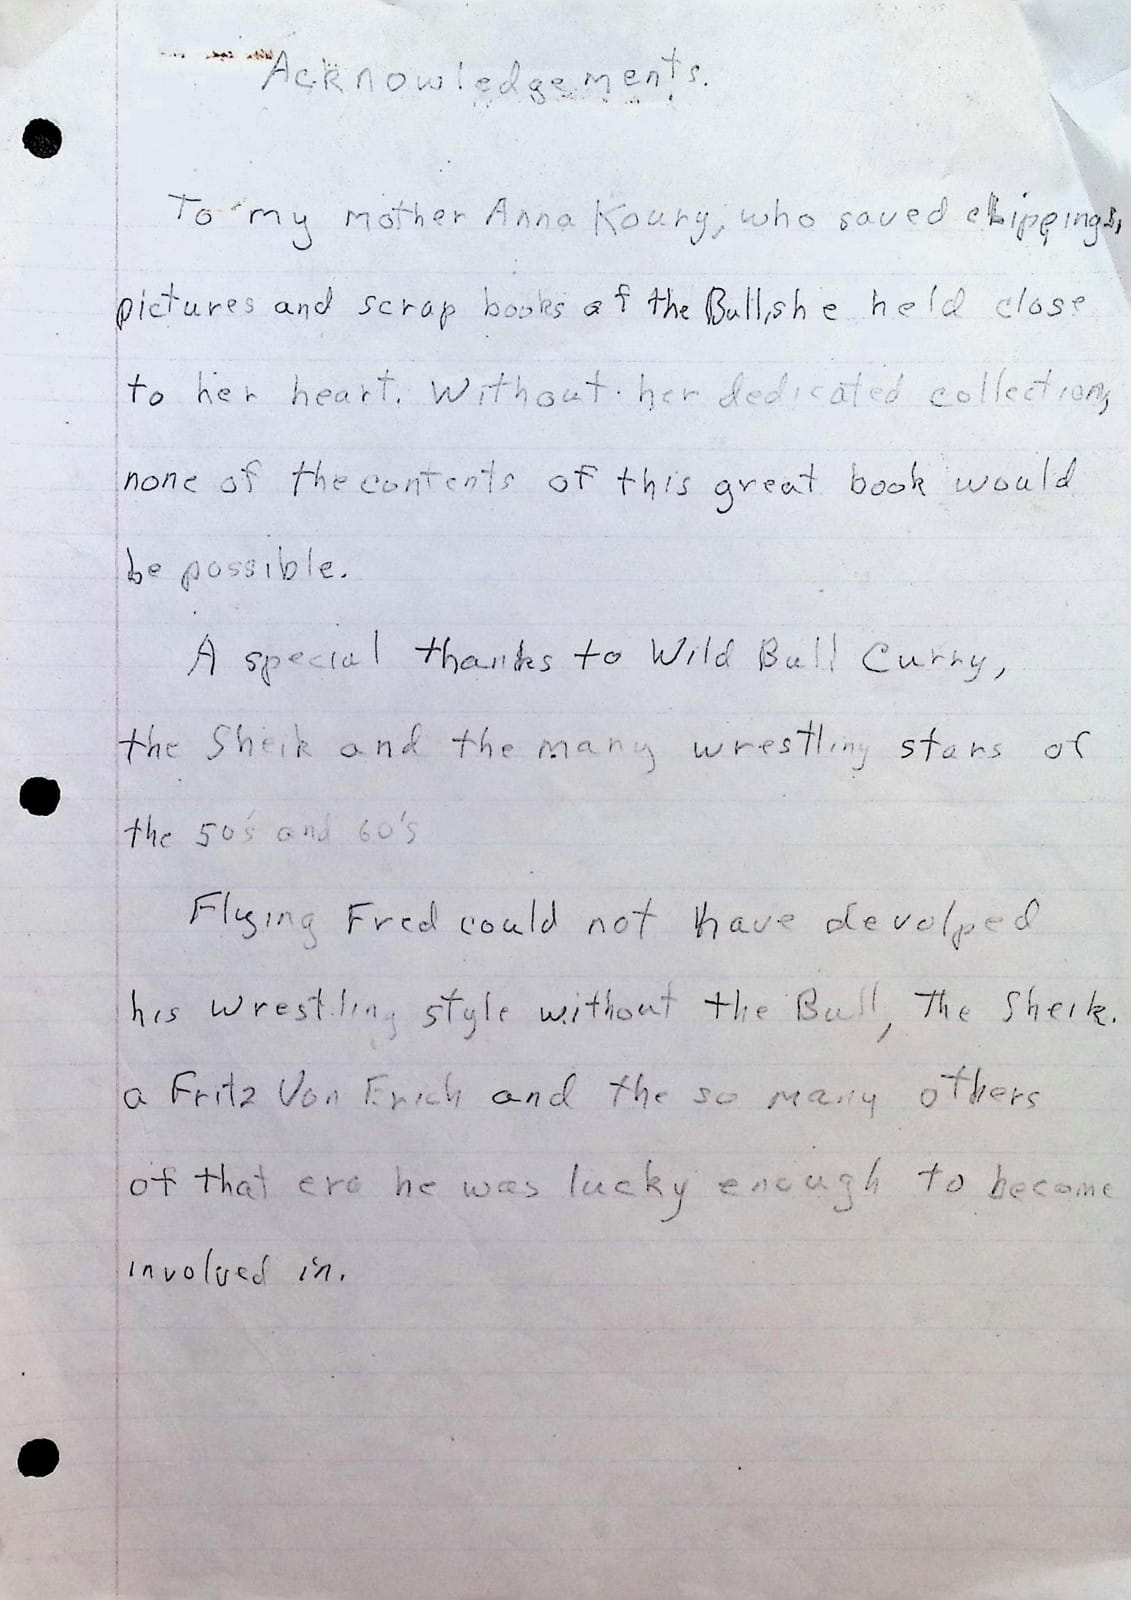 Acknowledgements.
To my mother Anna Koury, who saved clippings,
pictures and scrap books of the Bull, she held close
to her heart. Without her dedicated collection,
none of the contents of this great book would
be possible.
A special thanks to Wild Bull Curry,
the Sheik and the many wrestling stars of
the 50's and 60's
Flying Fred could not have devolped
his wrestling style without the Bull, The Sheik.
a Fritz Von Erich and the so many others
of that era he was lucky enough to become
involved in.